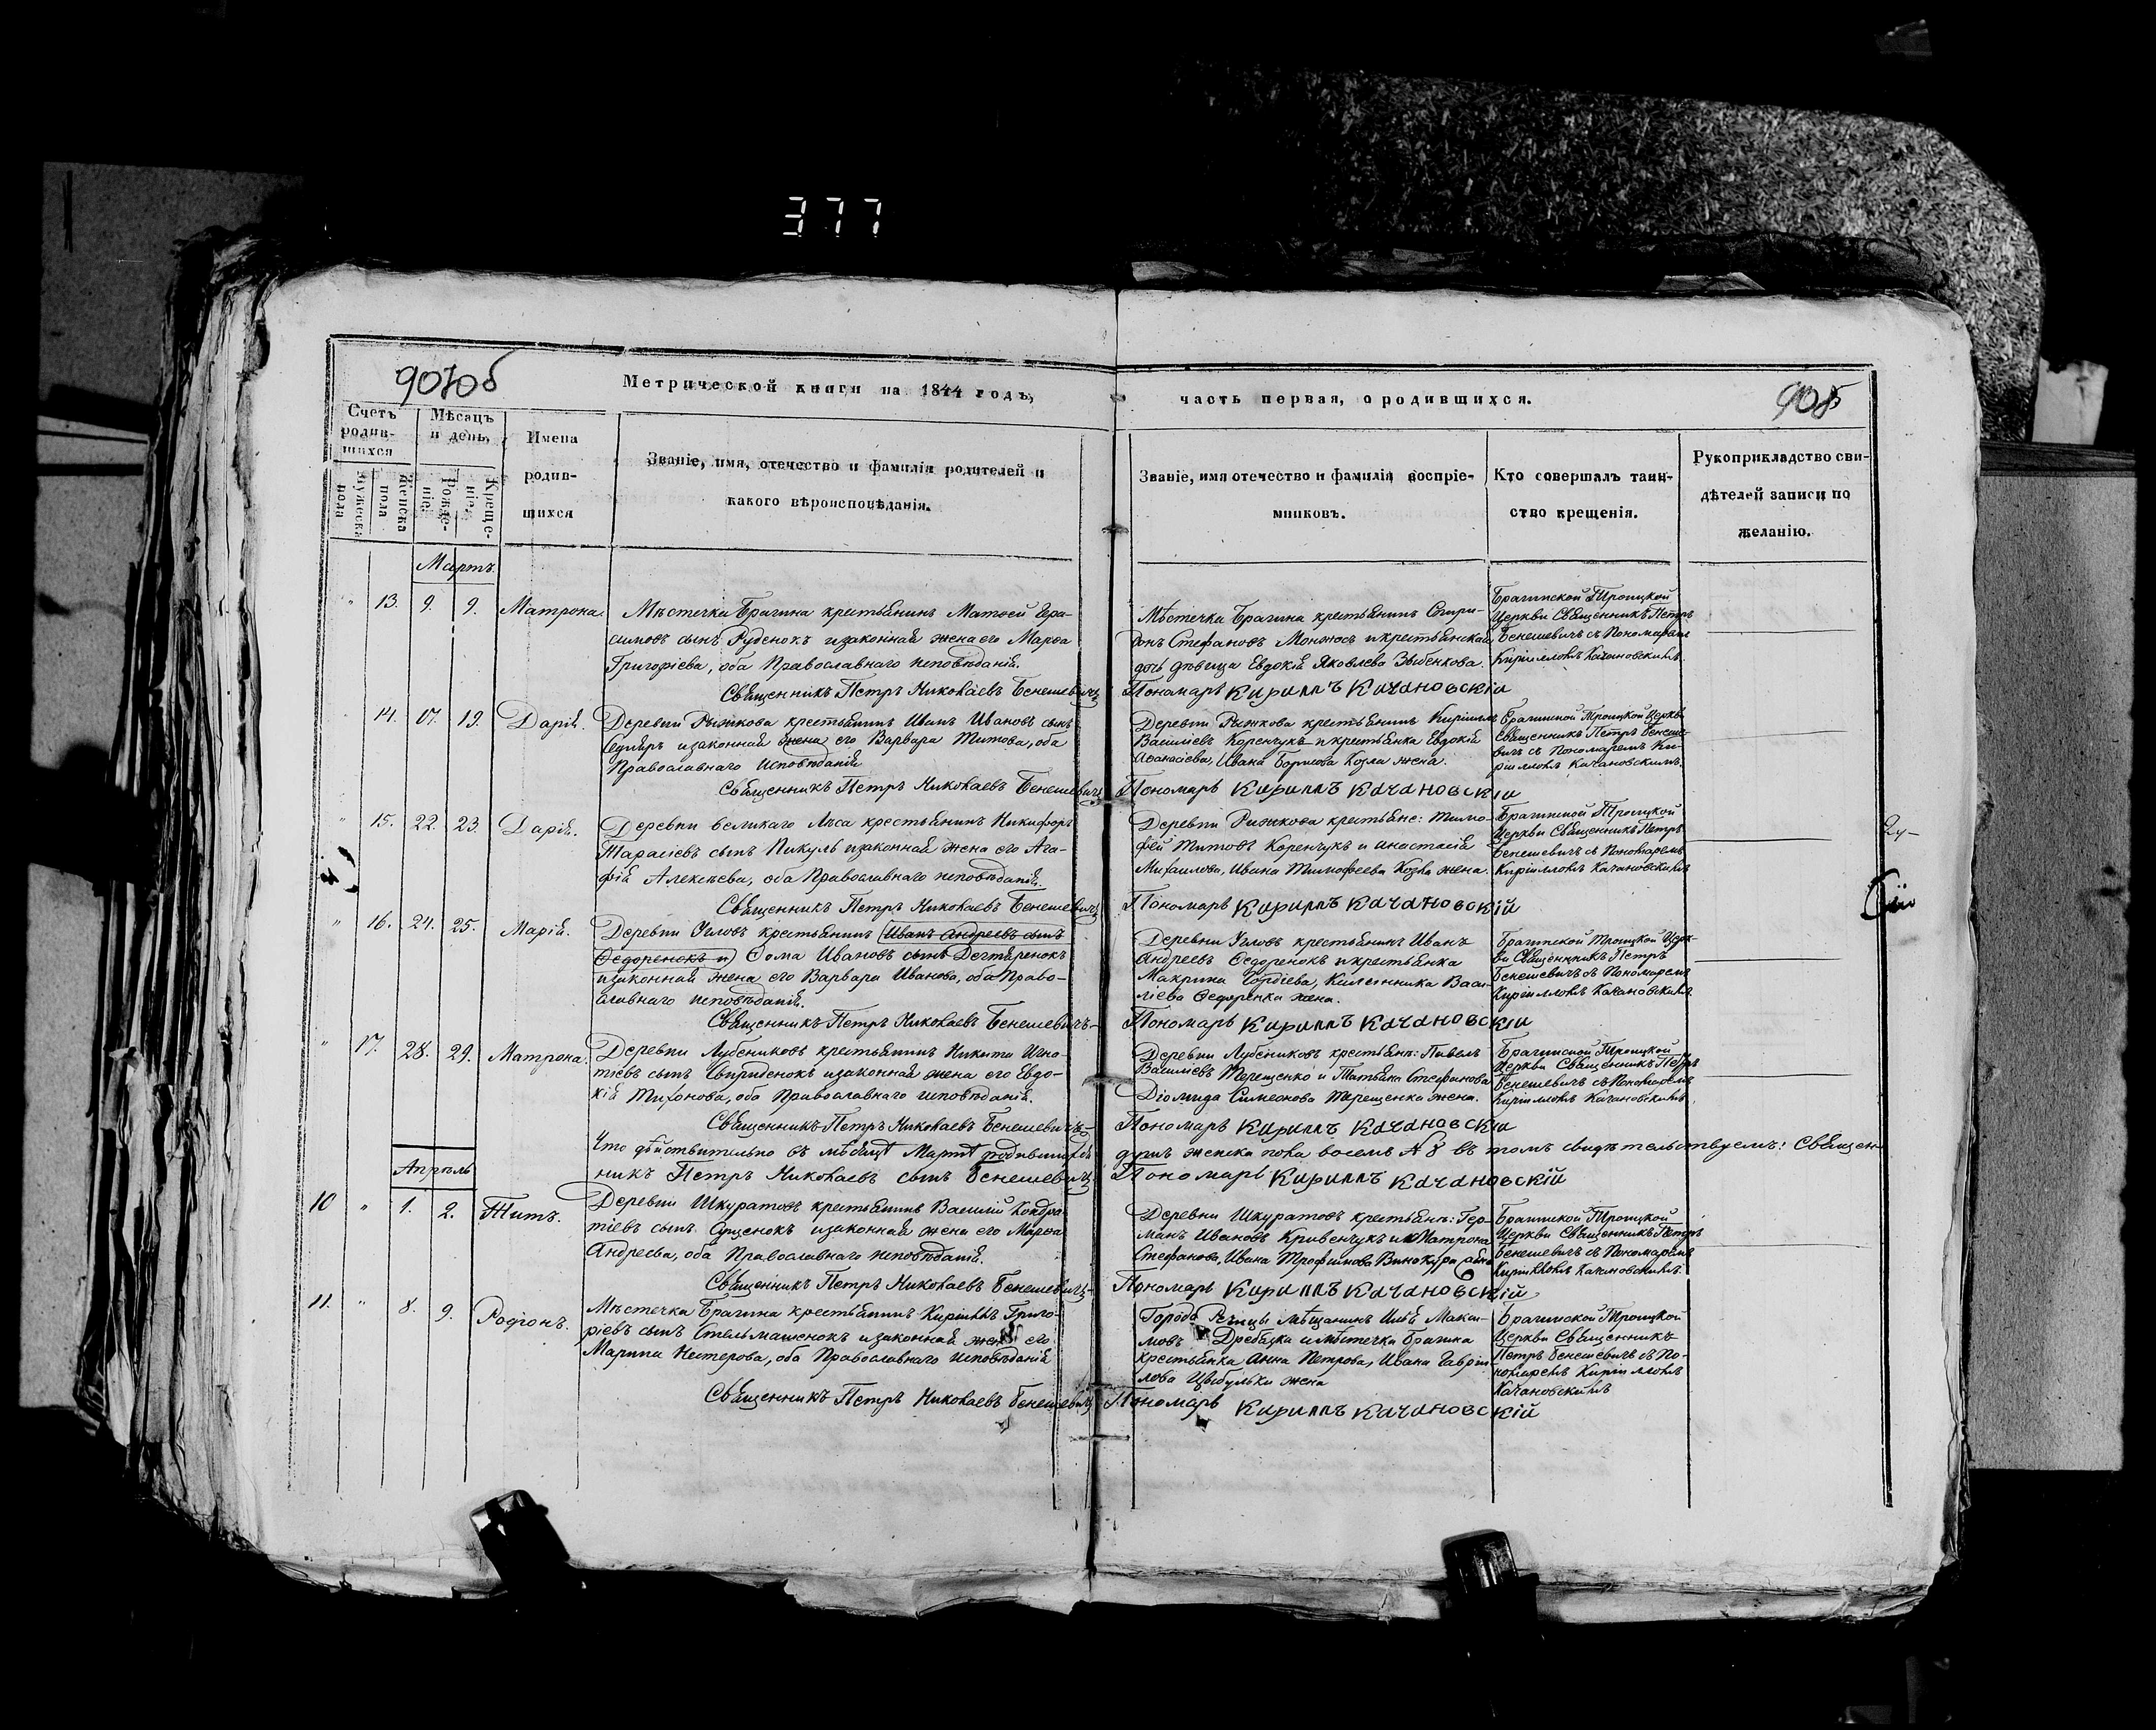 377
907об
Метрической книги на 1844 годъ,
Счетъ родив-шихся
Мѣсяцъ и день.
Имена родив-шихся
Званіе, имя, отечество и фамилія родителей и какого вѣроисповѣданія.
Мужеска пола
Женска пола
Рожде-ніе.
Креще-ніе.
часть первая, о родившихся.
908
Званіе, имя отечество и фамилія воспріе-мниковъ.
Кто совершалъ таин-ство крещенія.
Рукоприкладство сви-дѣтелей записи по желанію.
Мартъ.
" 13. 9. 9. Матрона.
Мѣстечка Брагина крестьянинъ Матѳей Гера-
симовъ сынъ Руденокъ и законная жена его Марѳа
Григоріева, оба Православнаго исповѣданія.
Священникъ Петръ Николаевъ Бенешевичъ
Мѣстечка Брагина крестьянинъ Спири-
донъ Стефановъ Монжосъ и крестьянская
дочь дѣвица Евдокія Яковлева
Пономарь Кириллъ Качановскій
Брагинской Троицкой
Церкви Священникъ Петръ
Бенешевичъ съ Пономаремъ
Кирилломъ Качановскимъ.
14. 17. 19. Дарія.
Деревни Рыжкова крестьянинъ Иванъ Ивановъ сынъ
и законная жена его Варвара Титова, оба
Православнаго Исповѣданія
Священникъ Петръ Николаевъ Бенешевичъ
Деревни Рыжкова крестьянинъ Кириллъ
Васильевъ Коренчукъ и крестьянка Евдокія
Аѳанасіева, Ивана Борисова Козла жена.
Пономарь Кириллъ Качановскій
Брагинской Троицкой Церкви
Священникъ Петръ Бенеше-
вичъ съ Пономаремъ Ки-
рилломъ Качановскимъ.
" 15. 22. 23. Дарія.
Деревни великаго Лѣса крестьянинъ Никифоръ
Тарасіевъ сынъ Пикуль и законная жена его Ага-
фія Алексѣева, оба Православнаго исповѣданія.
Священникъ Петръ Николаевъ Бенешевичъ
Деревни Рыжкова крестьяне: Тимо-
фей Титовъ Коренчукъ и Анастасія
Михаилова, Ивана Тимофеева Козла жена.
Пономарь Кириллъ Качановскій
Брагинской Троицкой
Церкви Священникъ Петръ
Бенешевичъ съ Пономаремъ
Кирилломъ Качановскимъ
" 16. 24. 25. Марія.
Деревни Угловъ крестьянинъ (Иванъ Андреевъ сынъ
Ѳедоренокъ и) Ѳома Ивановъ сынъ Дегтяренокъ
и законная жена его Варвара Иванова, оба Право-
славнаго исповѣданія.
Священникъ Петръ Николаевъ Бенешевичъ
Деревни Угловъ крестьянинъ Иванъ
Андреевъ Ѳедоренокъ и крестьянка
Макрина Гордѣева, Василіева Ѳедоренка жена.
Пономарь Кириллъ Качановскій
Брагинской Троицкой Церк-
ви Священникъ Петръ
Бенешевичъ съ Пономаремъ
Кирилломъ Качановскимъ
" 17. 28. 29. Матрона.
Деревни Лубениковъ крестьянинъ Никита Игна-
тіевъ сынъ Свириденокъ и законная жена его Евдо-
кія Тихонова, оба Православнаго исповѣданія.
Священникъ Петръ Николаевъ Бенешевичъ
Деревни Лубениковъ крестьяне: Павелъ
Василіевъ Терещенко и Татьяна Стефанова
Діомида Симеонова Терещенка жена.
Пономарь Кириллъ Качановскій
Брагинской Троицкой
Церкви Священникъ Петръ
Бенешевичъ съ Пономаремъ
Кирилломъ Качановскимъ
Что дѣйствительно въ мѣсяцѣ Мартѣ родившихся
душъ женска пола восемь № 8 въ томъ свидѣтельствуемъ: Священ-
никъ Петръ Николаевъ сынъ Бенешевичъ
Пономарь Кириллъ Качановскій
Апрѣль
10 " 1. 2. Титъ.
Деревни Шкуратовъ крестьянинъ Василій Кондра-
тіевъ сынъ Сущенокъ и законная жена его Марѳа
Андреева, оба Православнаго исповѣданія.
Священникъ Петръ Николаевъ Бенешевичъ
Деревни Шкуратовъ крестьяне: Гер-
манъ Ивановъ Кривенчукъ и Матрона
Стефанова, Ивана Трофимова Винокура жена
Пономарь Кириллъ Качановскій
Брагинской Троицкой
Церкви Священникъ Петръ
Бенешевичъ съ Пономаремъ
Кирилломъ Качановскимъ.
11. " 8. 9. Родіонъ.
Мѣстечка Брагина крестьянинъ Кириллъ Григо-
ріевъ сынъ Стельмашенокъ и законная жена его
Марина Нестерова, оба Православнаго исповѣданія
Священникъ Петръ Николаевъ Бенешевичъ
Города Рѣчицы мѣщанинъ Илія Макси-
мовъ Дребязка и мѣстечка Брагина
крестьянка Анна Петрова, Ивана Гаври-
лова Цыбульки жена
Пономарь Кириллъ Качановскій
Брагинской Троицкой
Церкви Священникъ
Петръ Бенешевичъ съ По-
номаремъ Кирилломъ
Качановскимъ